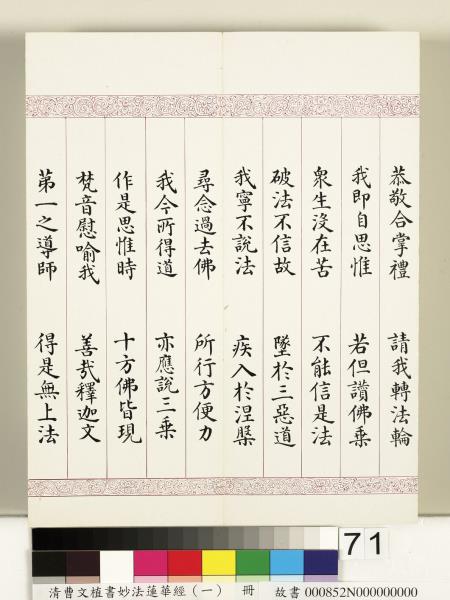 恭敬合掌禮　請我轉法輪
我即自思惟　若但讚佛乘
眾生沒在苦　不能信是法
破法不信故　墜於三惡道
我寧不說法　疾入於涅槃
尋念過去佛　所行方便力
我今所得道　亦應說三乘
作是思惟時　十方佛皆現
梵音慰喻我　善哉釋迦文
第一之導師　得是無上法
71
清曹文埴書妙法蓮華經（一）　冊　故書 000852N000000000